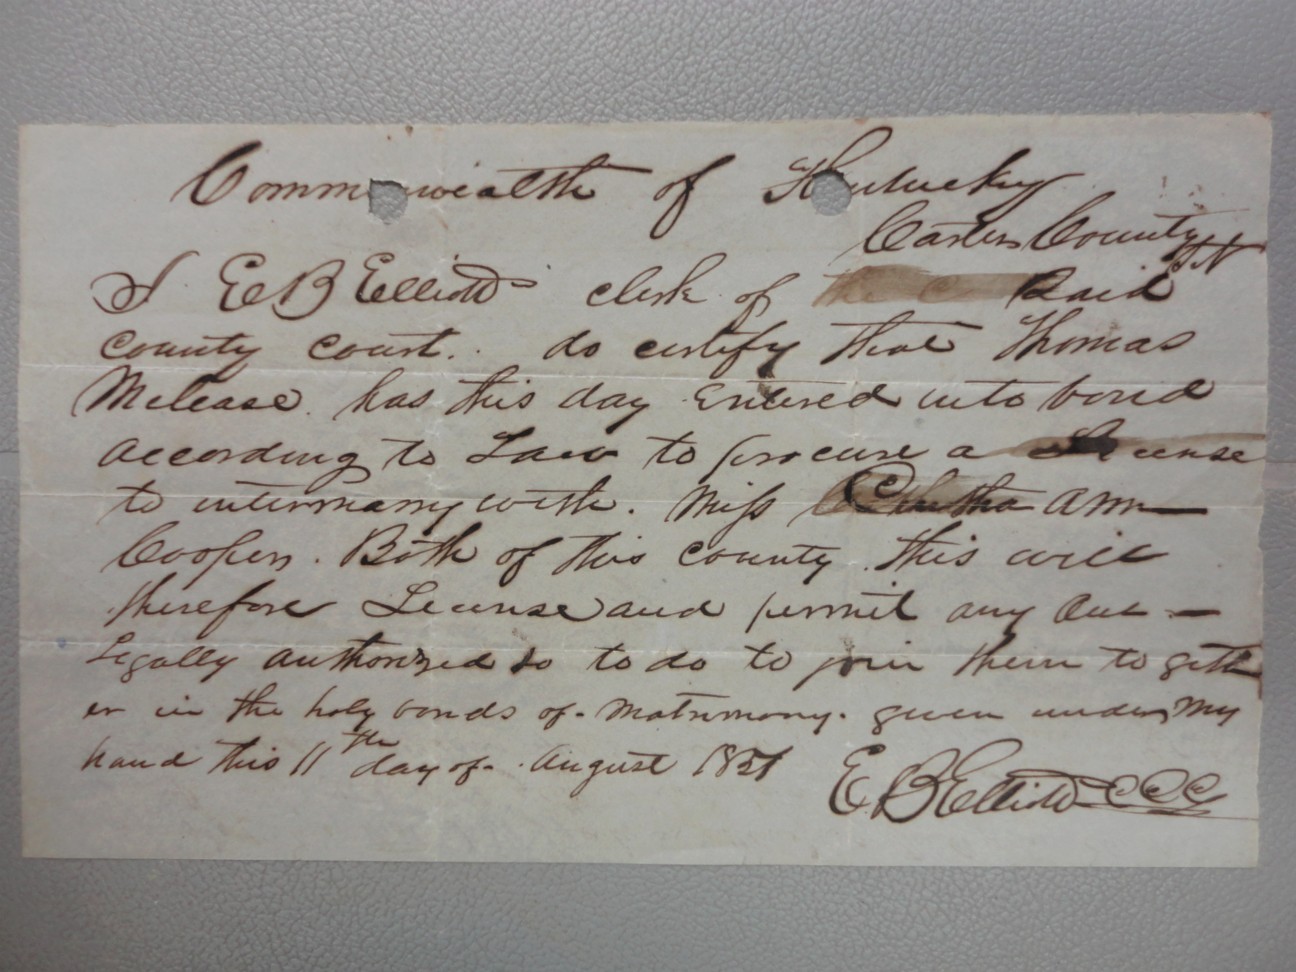 Commonwealth of Kentucky
Carter County
I E B Elliott clerk of said
county court. do certify that Thomas
Mclease has this day Entered into bond
according to Law to procure a License
to intermarry with. Miss Ann
Cooper. Both of this county. this will
therefore License and permit any one
Legally authorized so to do to join them to geth
er in the holy bonds of. Matrimony. given under my
hand this 11th day of. August 1851
E B Elliott CCC